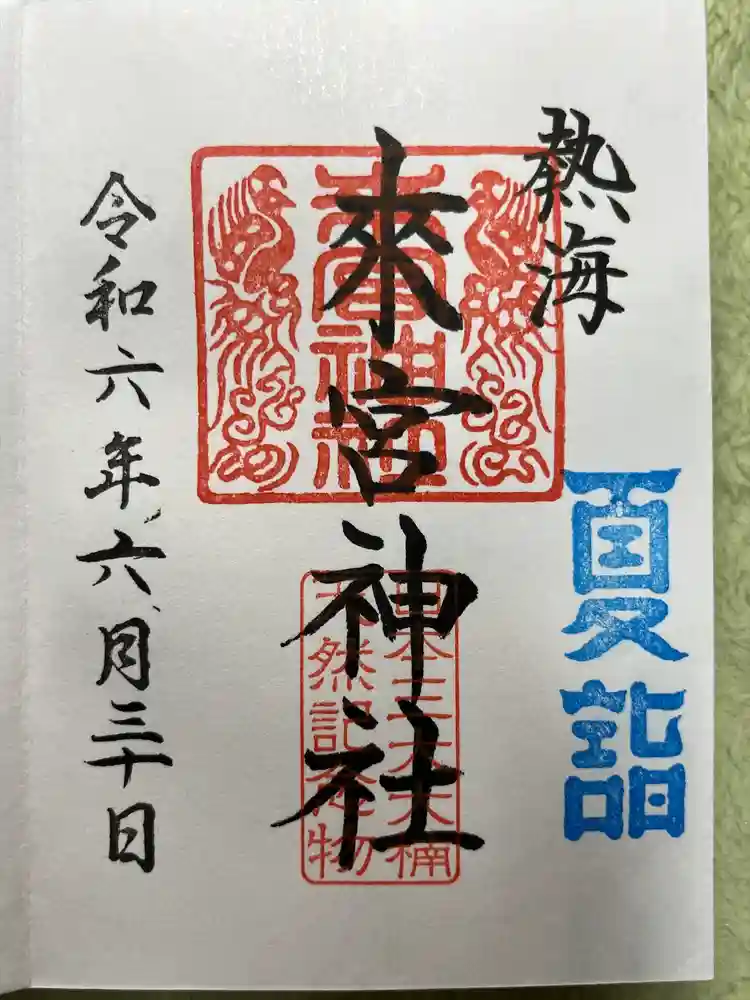 熱海
來宮神社
來宮神社
日本三大大楠
天然記念物
夏詣
令和六年六月三十日